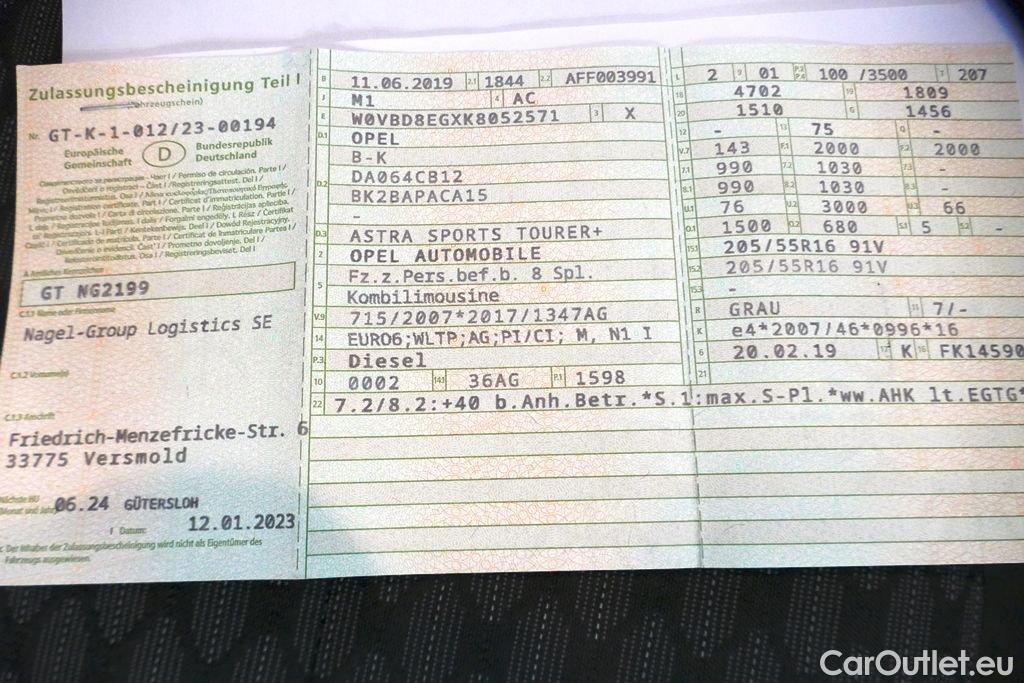 Zulassungsbescheinigung Teil I
Nr. GT-K-1-012/23-00194
Europäische Gemeinschaft
D
Bundesrepublik Deutschland
A Amtliches Kennzeichen
GT NG2199
C.1.1 Name oder Firmenname
Nagel-Group Logistics SE
C.1.2 Vorname(n)
C.1.3 Anschrift
Friedrich-Menzefricke-Str. 6
33775 Versmold
Nächste HU
06.24 GÜTERSLOH
I Datum: 12.01.2023
Der Inhaber der Zulassungsbescheinigung wird nicht als Eigentümer des
Fahrzeugs ausgewiesen.
B 11.06.2019 2.1 1844 2.2 AFF003991
J M1 4 AC
E W0VBD8EGXK8052571 3 X
D.1 OPEL
B-K
D.2 DA064CB12
BK2BAPACA15
-
D.3 ASTRA SPORTS TOURER+
2 OPEL AUTOMOBILE
5 Fz.z.Pers.bef.b. 8 Spl.
Kombilimousine
V.9 715/2007*2017/1347AG
14 EURO6;WLTP;AG;PI/CI; M, N1 I
P.3 Diesel
10 0002 14.1 36AG P.1 1598
22 7.2/8.2:+40 b.Anh.Betr.*S.1:max.S-Pl.*ww.AHK lt.EGTG*
L 2 9 01 P.2 P.4 100 /3500 T 207
18 4702 19 1809
20 1510 G 1456
12 - 13 75 Q -
V.7 143 F.1 2000 F.2 2000
7.1 990 7.2 1030 7.3 -
8.1 990 8.2 1030 8.3 -
U.1 76 U.2 3000 U.3 66
O.1 1500 O.2 680 S.1 5 S.2 -
15.1 205/55R16 91V
15.2 205/55R16 91V
15.3 -
R GRAU 11 7/-
K e4*2007/46*0996*16
6 20.02.19 17 K 16 FK14590
21
CarOutlet.eu